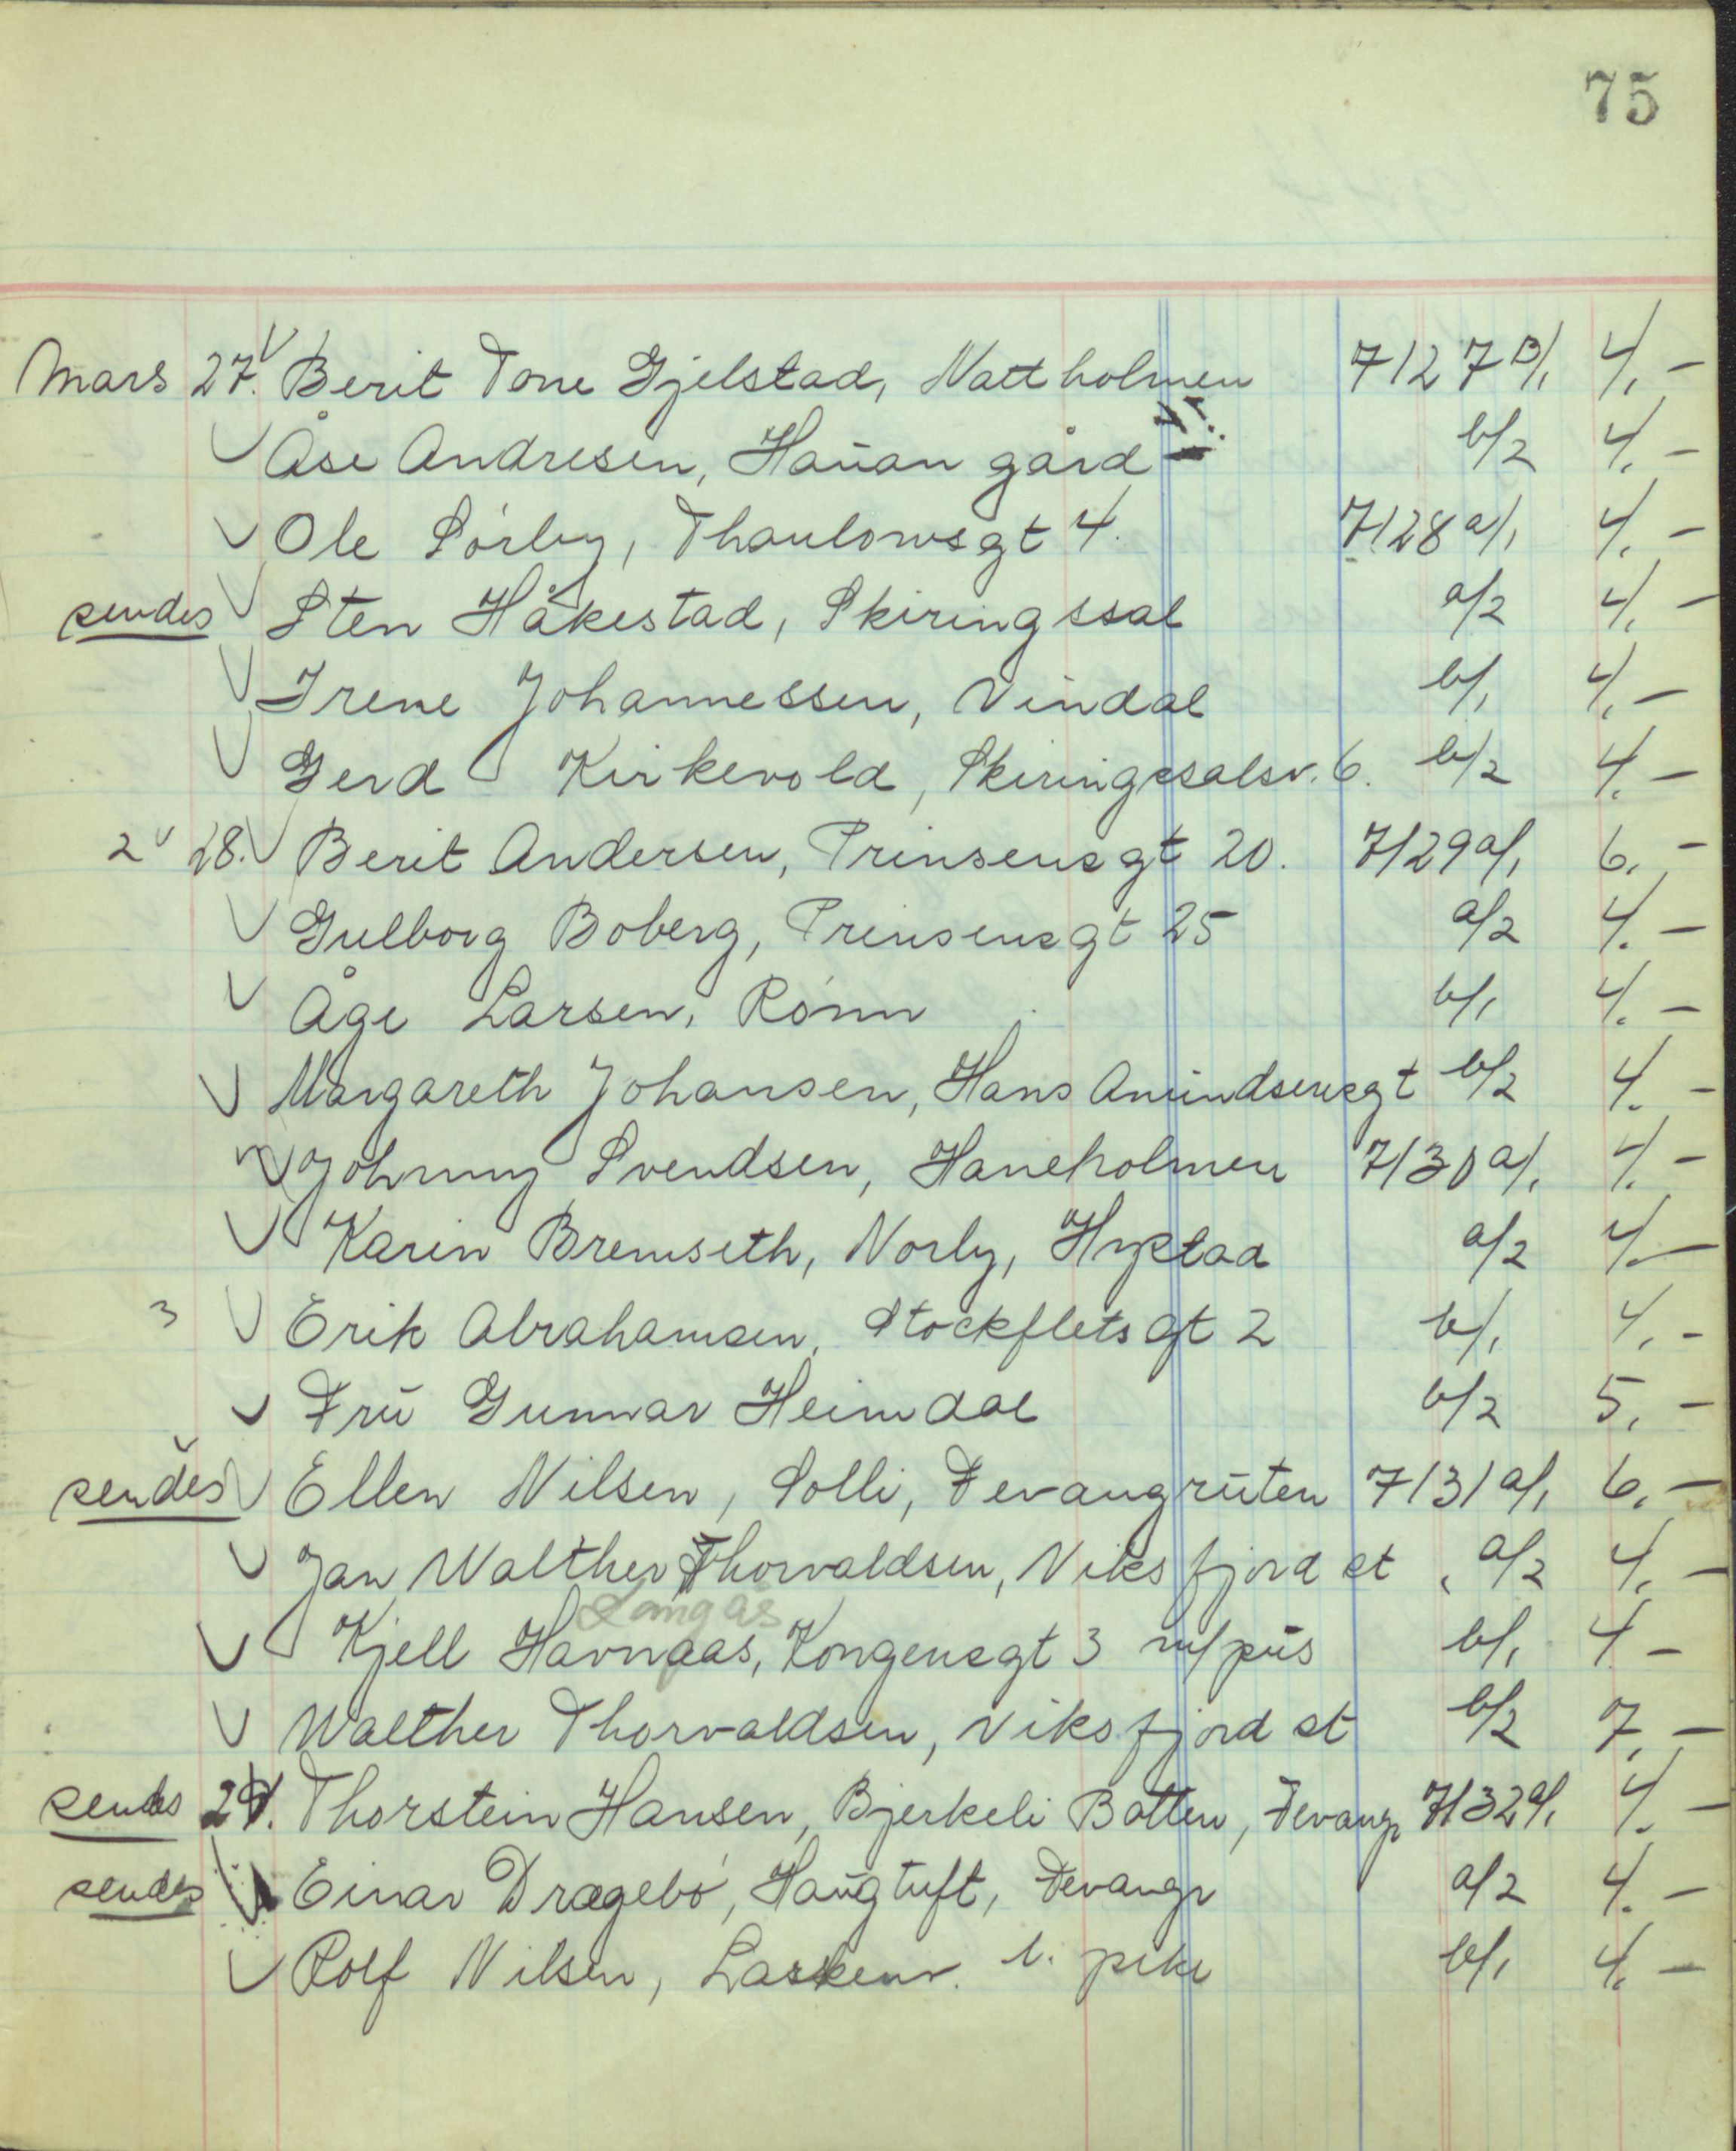 75
Mars 27. Berit Tone Gjelstad, Nattholmen 7127 B/1 4,-
Åse Andresen, Hauan gård b/2 4,-
Ole Sörby, Thaulowsgt 4. 7128 a/1 4,-
sendes Sten Håkestad, Skiringssal a/2 4,-
Irene Johannessen, Vindal b/1 4,-
Gerd Kirkevold, Skiringssalsv. 6. b/2 4,-
2 28. Berit Andersen, Prinsensgt 20. 7129 a/1 6,-
Gulborg Boberg, Prinsensgt 25 a/2 4.-
Åge Larsen, Rönn b/1 4.-
Margareth Johansen, Hans Amundsensgt b/2 4.-
Johnny Svendsen, Haneholmen 7130 a/1 4.-
Karin Bremseth, Norby, Hystad a/2 4.-
3 Erik Abrahamsen, Stockfletsgt 2 b/1 4,-
Fru Gunnar Heimdal b/2 5,-
sendes Ellen Nilsen, Solli, Tevangruten 7131 a/1 6,-
Jan Walther Thorvaldsen, Viksfjord st a/2 4,-
Langås
Kjell Havnaas, Kongensgt 3 m/pus b/1 4-
Walther Thorvaldsen, Viksfjord st b/2 7,-
sendes 29. Thorstein Hansen, Bjerkeli Botten, Tevang 7132 a/1 4.-
sendes Einar Dragebö, Haugtuft, Tevang a/2 4.-
Rolf Nilsen, l. pike b/1 4,-